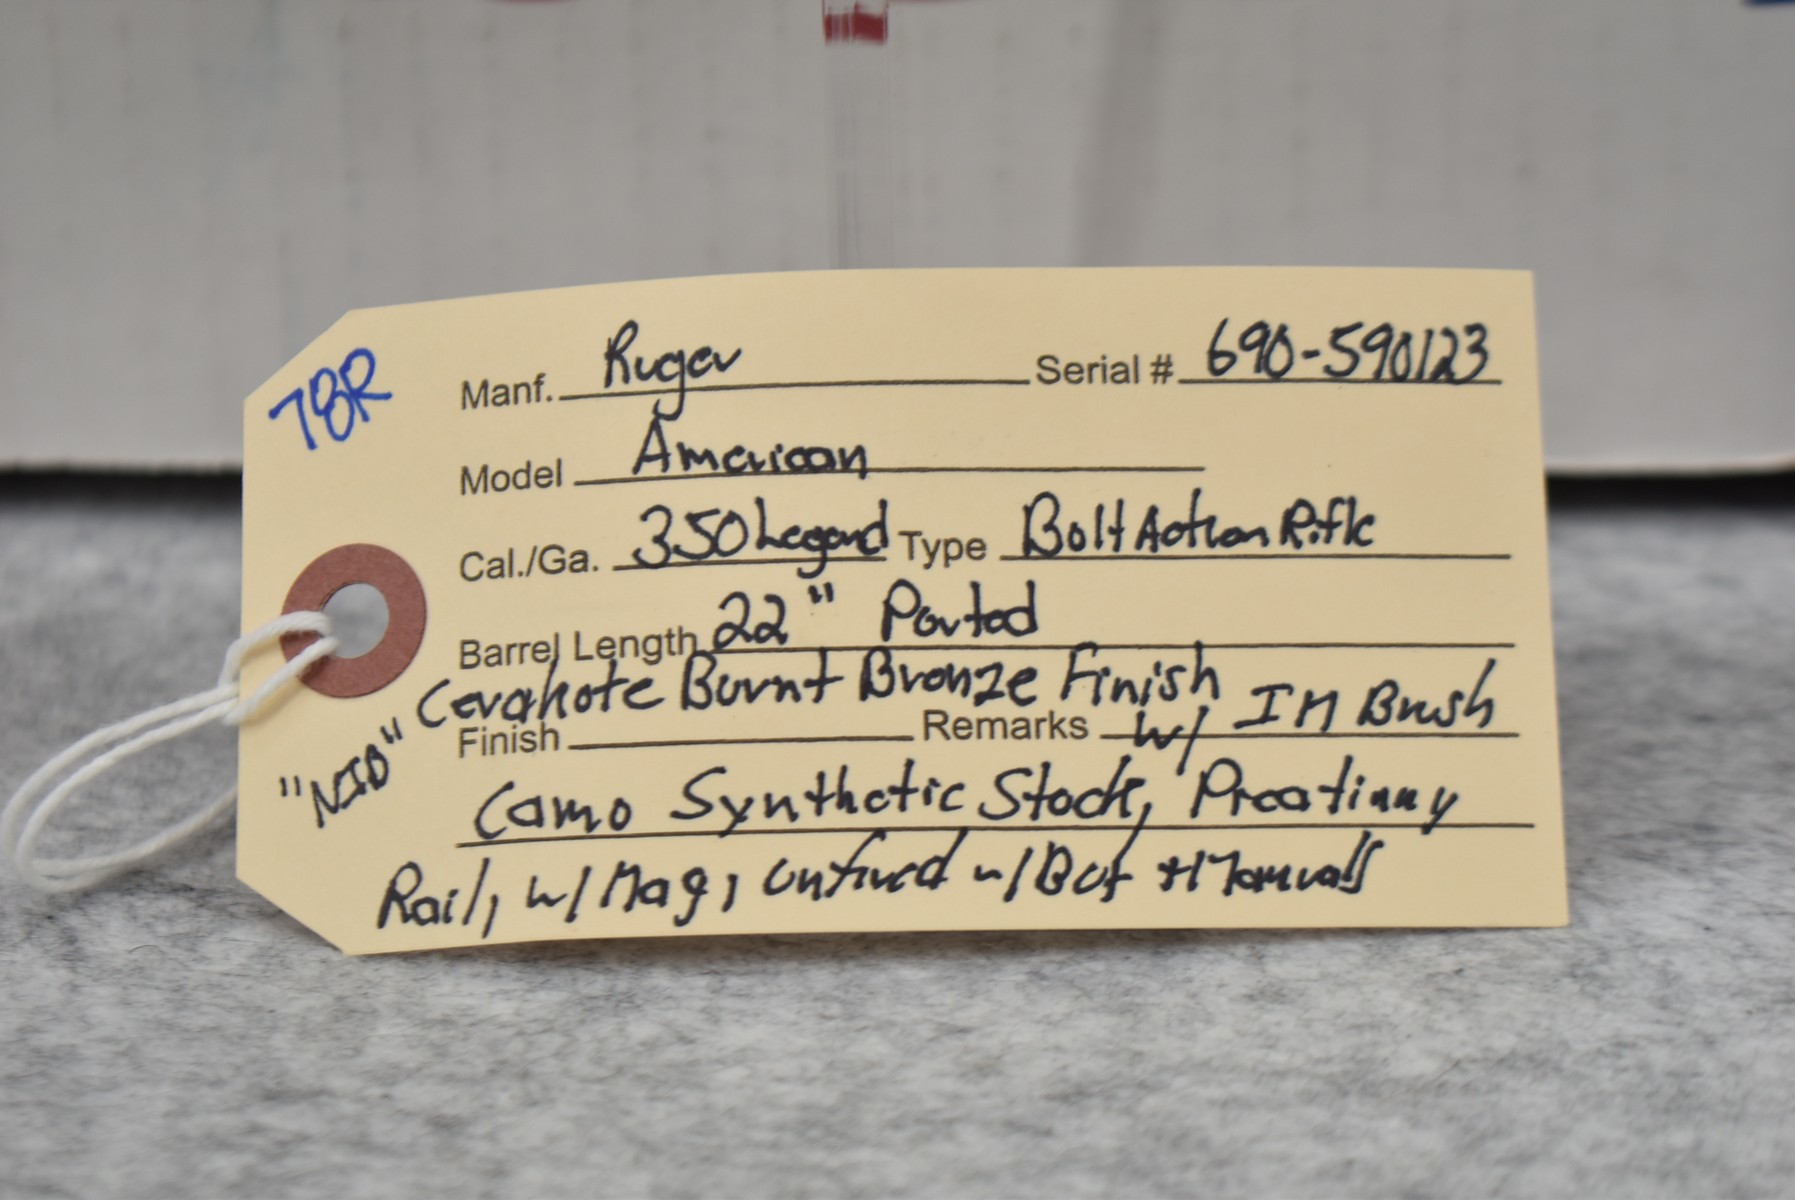 78R
Manf. Ruger Serial # 690-590123
Model American
Cal./Ga. 350 Legend Type Bolt Action Rifle
Barrel Length 22" Ported
Cerakote Burnt Bronze Finish
Finish Remarks w/ IM Brush
"NIB"
Camo Synthetic Stock, Picatinny
Rail, w/ Mag, unfired w/ Box + Manuals